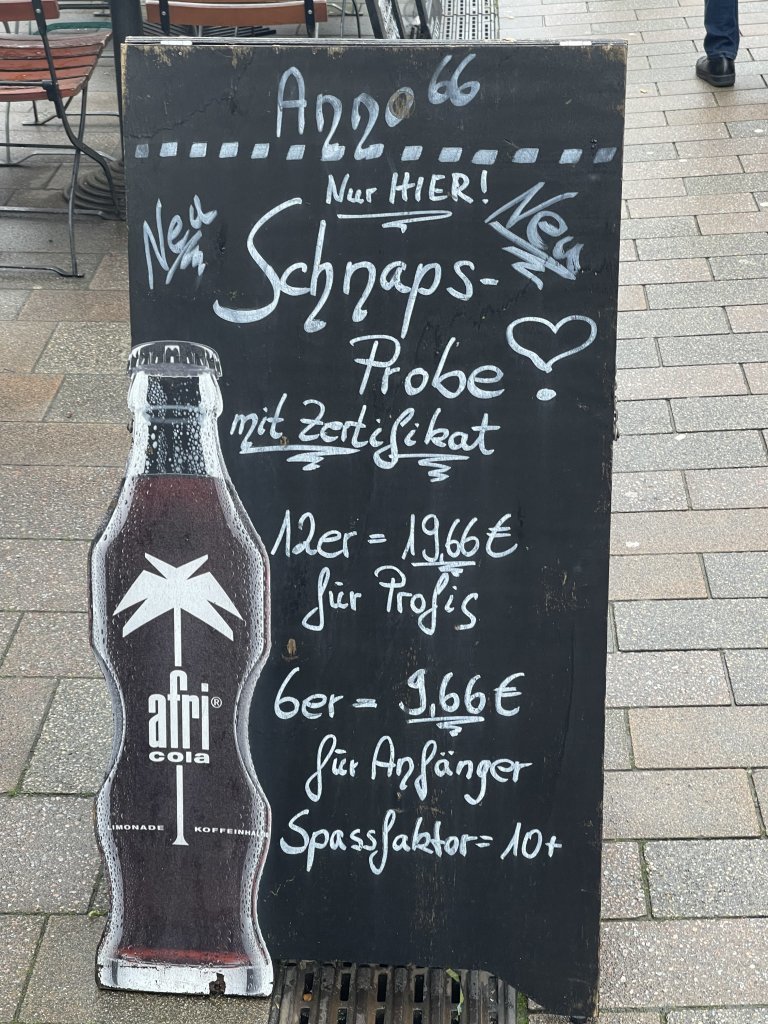 Anno 66
Nur HIER!
Neu
Neu
Schnaps-
Probe!
mit Zertifikat
12er = 19,66 €
für Profis
6er = 9,66 €
für Anfänger
Spassfaktor = 10+
afri®
cola
LIMONADE